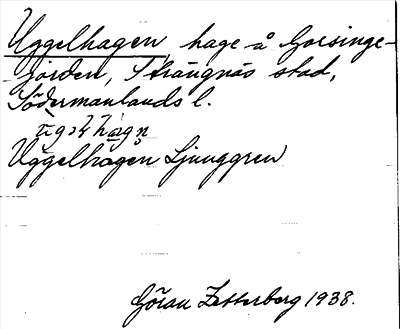 Uggelhagen, hage å Gorsinge-
gården, Strängnäs stad,
Södermanlands l.
Uggelhagen Ljunggren
Göran Zetterberg 1938.